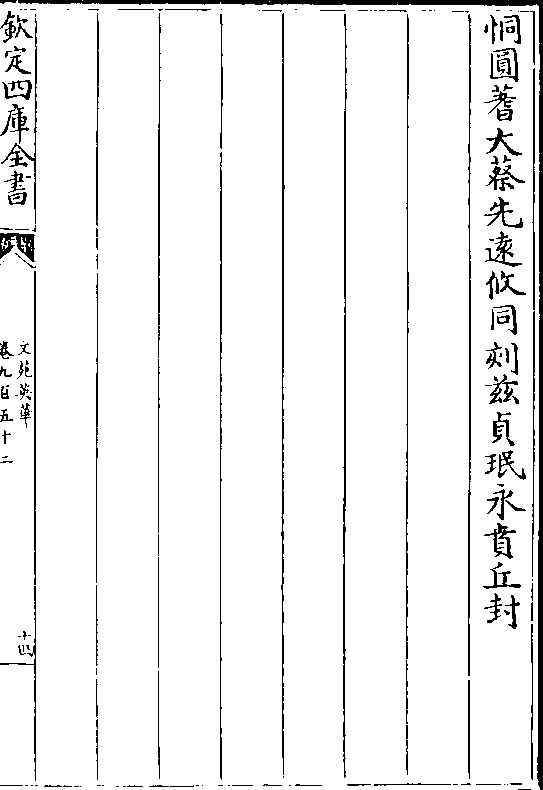 恫圓蓍大蔡先遠攸同刻兹貞珉永賁丘封
欽定四庫全書
文苑英華
卷九百五十二
十四